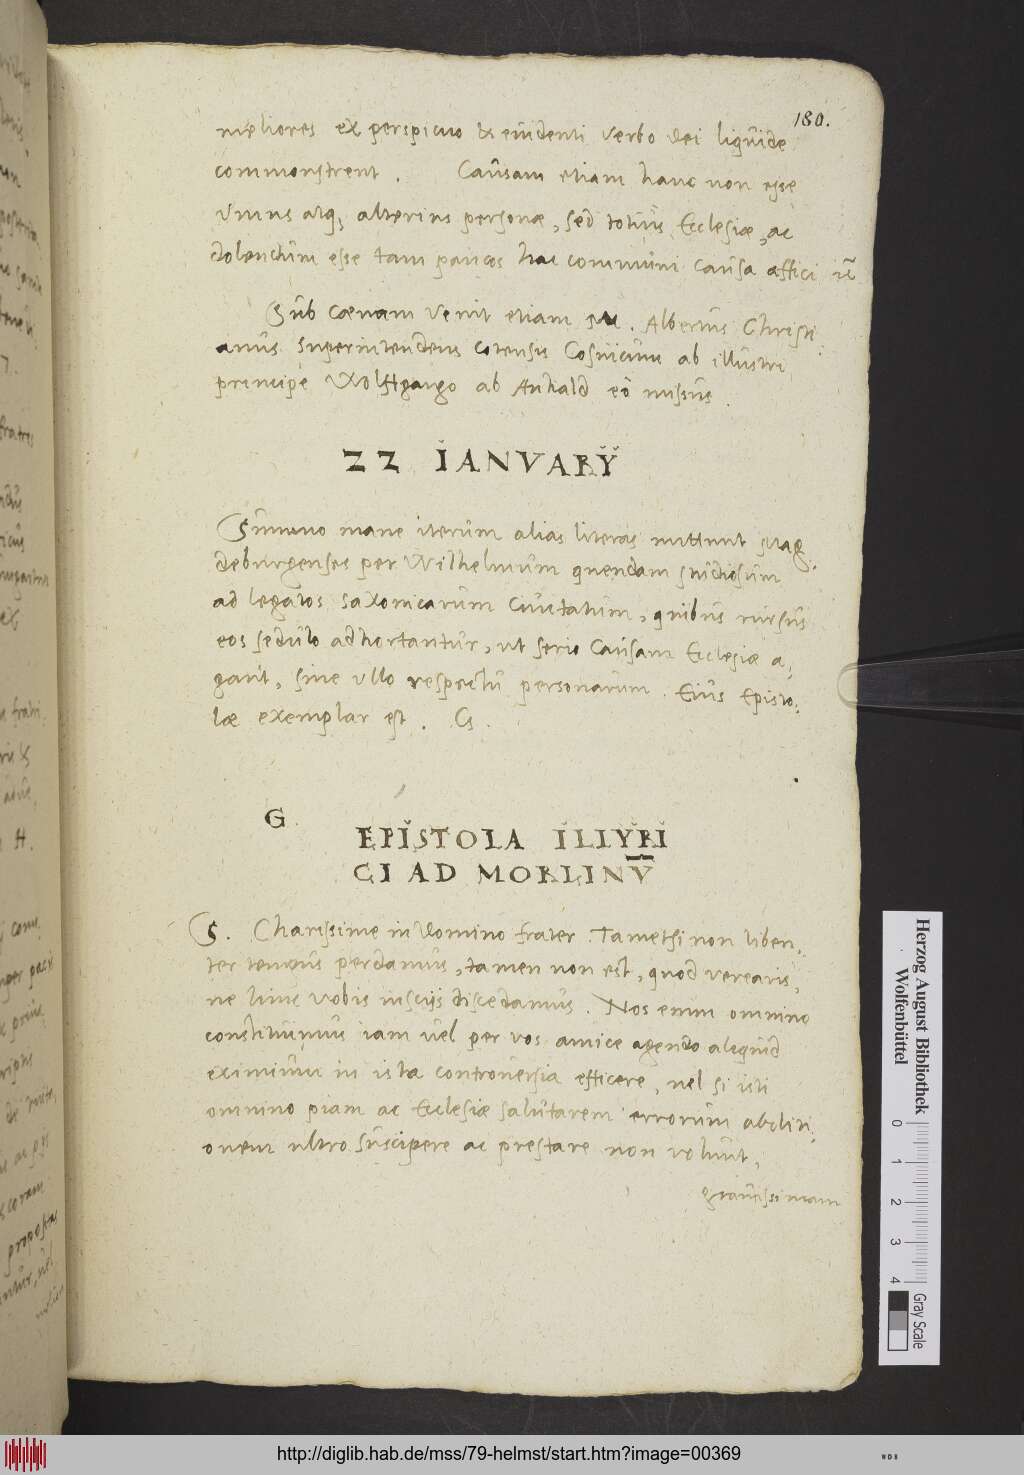 180.
meliores ex perspicuo & euidenti verbo dei liquide
commonstrent. Causam etiam hanc non esse
vnius atq; alterius personæ, sed totius Ecclesiæ, ac
dolendum esse tam paucos hac communi causa affici
Sub cœnam venit etiam M. Albertus Christi
anus Superintendens Cotensis Cosuicum ab illustri
principe Wolffgango ab Anhald eò missus.
22 IANUARY
Summo mane iterum alias literas mittunt Mag
deburgenses per Wilhelmum quendam studiosum
ad legatos Saxonicarum Ciuitatum, quibus rursus
eos sedulo adhortantur, ut serio Causam Ecclesiæ a,
gant, sine vllo respectu personarum. Eius Episto,
læ exemplar est. G.
G.
EPISTOLA ILLYRI
CI AD MORLINV̄
S. Charissime in Domino frater. Tametsi non liben,
ter tempus perdamus, tamen non est, quod verearis,
ne hinc vobis insciis discedamus. Nos enim omnino
constituimus iam uel per vos amice agendo aliquid
eximium in ista controuersia efficere, uel si isti
omnino piam ac Ecclesiæ salutarem errorum aboliti,
onem ultro suscipere ac prestare non volunt,
grauissimam
Herzog August Bibliothek
Wolfenbüttel
0 1 2 3 4
Gray Scale
http://diglib.hab.de/mss/79-helmst/start.htm?image=00369
WDB